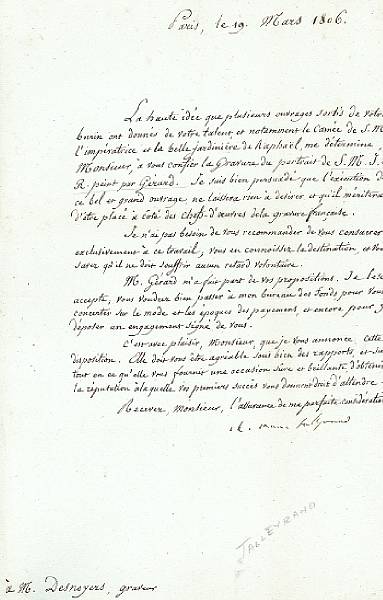 Paris, le 19 Mars 1806.
La haute idée que plusieurs ouvrages sortis de votre
burin ont donnée de votre talent, et notamment le Camée de S. M.
l'impératrice et la belle jardinière de Raphaël, me détermine,
Monsieur, à vous confier la Gravure du portrait de S. M. I.
R. peint par Gerard. Je suis bien persuadé que l'exécution d
ce bel et grand ouvrage, ne laissera rien à desirer et qu'il méritera
d'être placé à côté des chefs-d'œuvres de la gravure françoise.
Je n'ai pas besoin de vous recommander de vous consacrer
exclusivement à ce travail, vous en connoissez la destination, et vou
savez qu'il ne doit souffrir aucun retard volontaire.
M. Gérard m'a fait part de vos propositions. Je les
accepte, vous voudrez bien passer à mon bureau des fonds pour vous
concerter sur le mode et les époques des payemens, et encore pour y
déposer un engagement signé de vous.
C'est avec plaisir, Monsieur, que je vous annonce cette
disposition. Elle doit vous être agréable sous bien des rapports, et su
tout en ce qu'elle vous fournit une occasion sûre et brillante, d'obteni
la réputation à laquelle vos premiers succès vous donnent droit d'attendre.
Recevez, Monsieur, l'assurance de ma parfaite considération
TALLEYRAND
à M. Desnoyers, graveur